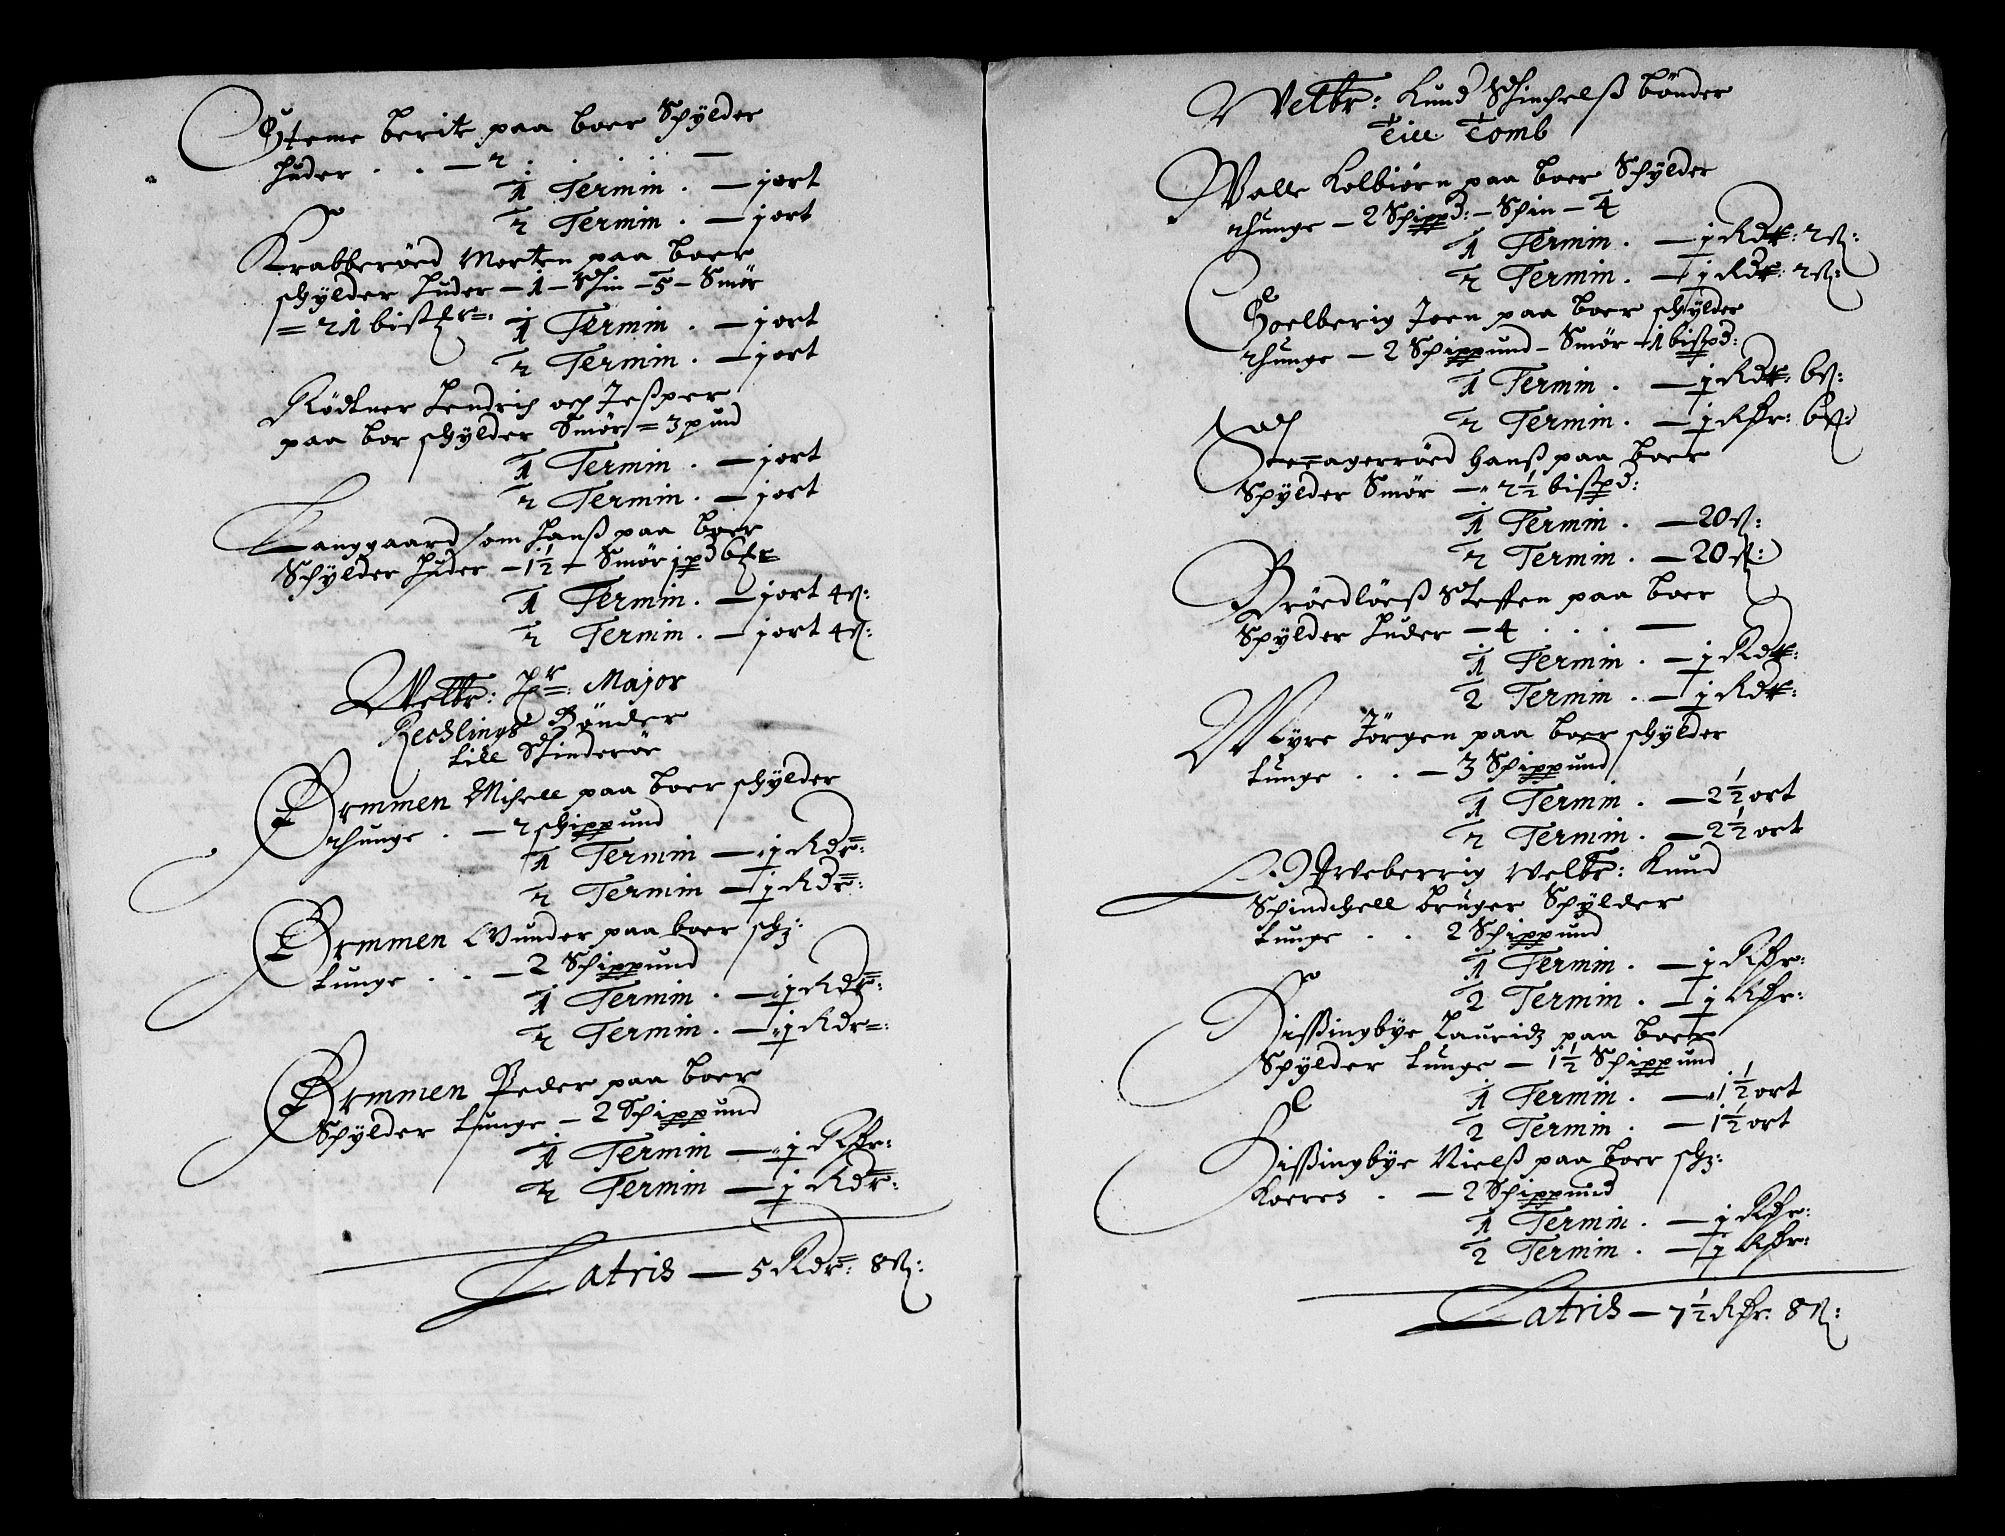 Steme berit paa boer Schylder
Huder . . — 2 . . . . —
1 Termin . — j ort
2 Termin . — j ort
Krabberøed Morten paa boer
schylder Huder — 1 — Skin — 5 — Smør
= 21 bis℔r=
1 Termin . — j ort
2 Termin . — j ort
Rødkner Hendrich och Jesper
paa bor schylder Smør = 3 pund
1 Termin . — j ort
2 Termin . — j ort
Langgaard som Hanß paa boer
Schylder Huder — 1½ — Smør j pd 6
1 Termin . — j ort 4 ß:
2 Termin . — j ort 4 ß:
Welbr: Hr=: Major
Rechlings Bønder
till Skinderøe
Ørmmen Michell paa boer schylder
thunge . — 2 schippund
1 Termin — j Rdr=:
2 Termin — j Rdr=:
Ørmmen Gunder paa boer sch:
tunge . . — 2 Schippund
1 Termin . — j Rdr=:
2 Termin . — j Rdr=:
Ørmmen Peder paa boer
Schylder tunge — 2 Schippund
1 Termin — j Rdr:
2 Termin — j Rdr=:
Latris — 5 Rdr=: 8 ß:
Welbr: Knud Schinchelß bønder
Till Tomb
Walle Kolbiørn paa boer Schylder
thunge — 2 Schippd: — Schin — 4
1 Termin . — j Rdr: 2 ß:
2 Termin . — j Rdr: 2 ß:
Soelberig Joen paa boer schylder
thunge — 2 Schippund — Smør — 1 bispd:
1 Termin . — j Rdr: 6 ß:
2 Termin . — j Rdr: 6 ß:
Steenagerrøed Hanß paa boer
Schylder Smør — 2½ bispd:
1 Termin . — 20 ß:
2 Termin . — 20 ß:
Brøedløeß Steffen paa boer
Schylder Huder — 4 . . . —
1 Termin . — j Rdr:
2 Termin . — j Rdr:
Myre Jörgen paa boer schylder
tunge . . — 3 Schippund
1 Termin . — 2½ ort
2 Termin . — 2½ ort
Arveberrig welbr: Knud
Schinchell bruger Schylder
tunge . . 2 Schippund
1 Termin . — j Rdr:
2 Termin . — j Rdr:
Kissingbye Lauridz paa boer
Schylder tunge — 1½ Schippund
1 Termin . — 1½ ort
2 Termin . — 1½ ort
Kissingbye Nielß paa boer sch:
Koeren . — 2 Schippund
1 Termin . — j Rdr:
2 Termin . — j Rdr:
Latris — 7½ Rdr: 8 ß: